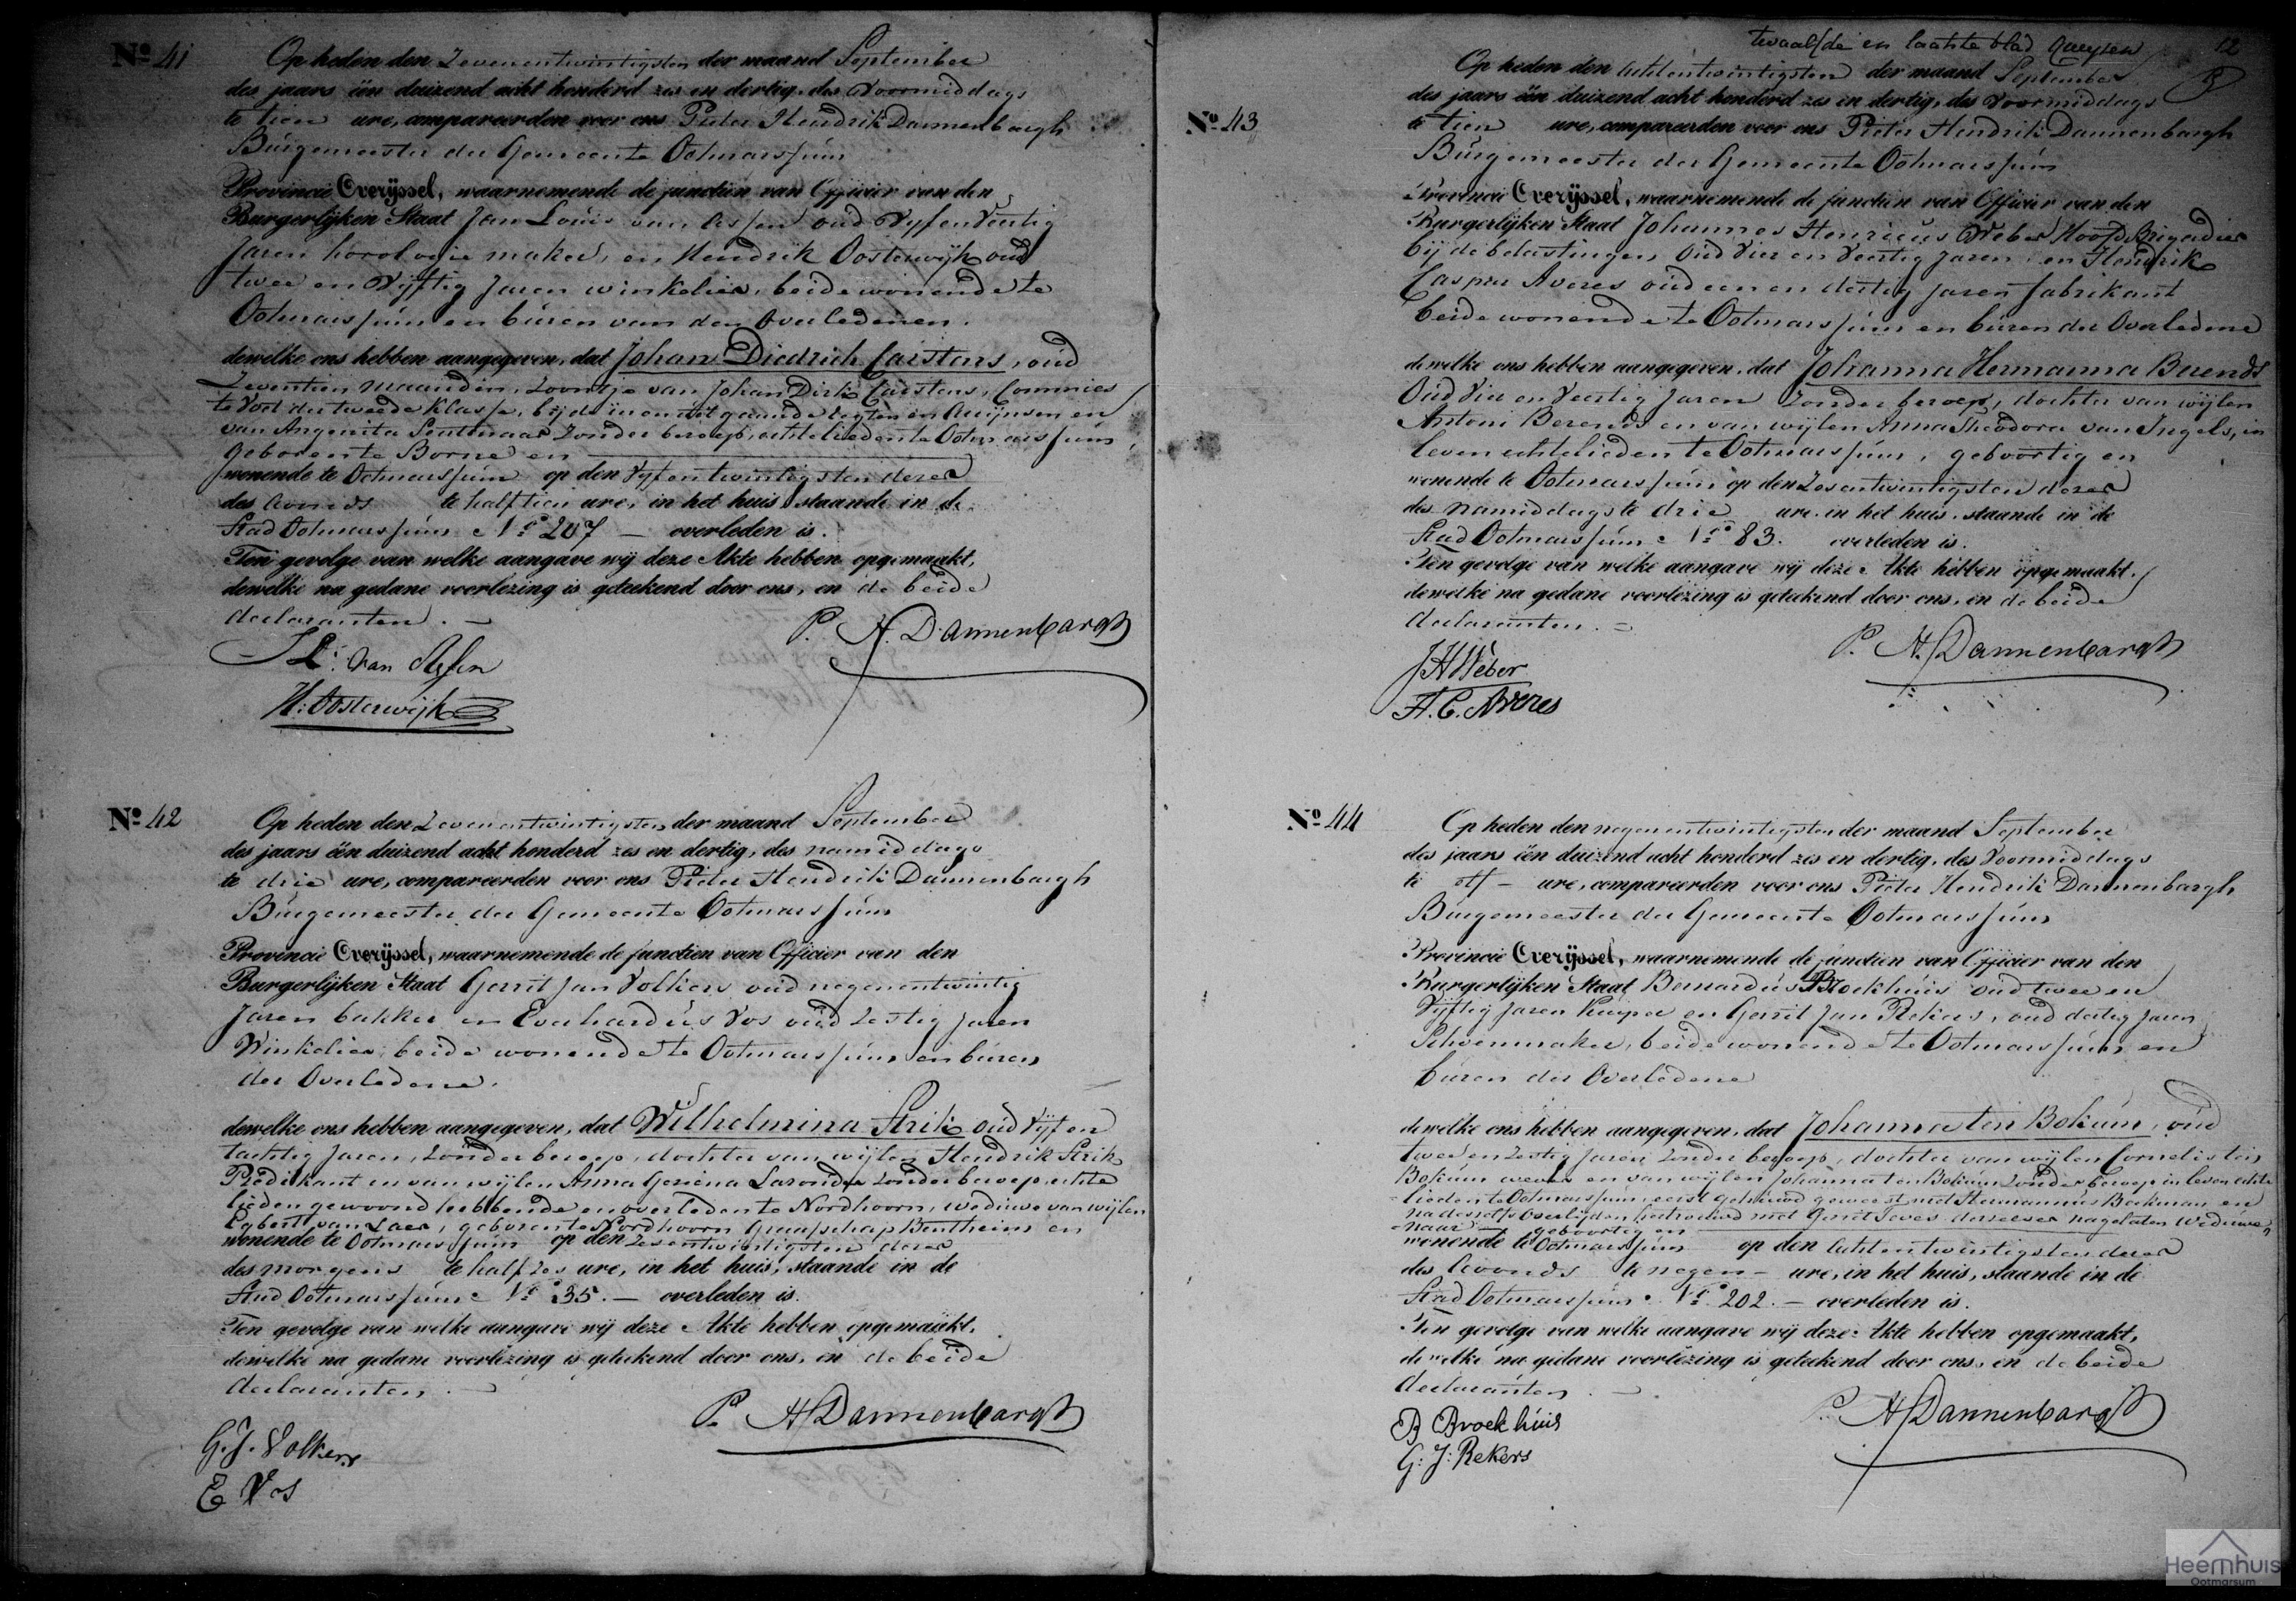 Nº 41
Op heden den Zevenentwintigsten der maand September
des jaars één duizend acht honderd zes en dertig, des Voormiddags
te tien ure, compareerden voor ons Pieter Hendrik Dannenbargh
Burgemeester der Gemeente Ootmarssum
Provincie Overijssel, waarnemende de functien van Officier van den
Burgerlijken Staat Jan Louis van Assen oud Vyfenveertig
Jaren horologie maker, en Hendrik Oosterwijk oud
twee en Vijftig Jaren winkelier, beide wonende te
Ootmarssum en buren van den Overledenen.
dewelke ons hebben aangegeven, dat Johan Diedrich Carstens, oud
Zeventien maanden, zoontje van Johan Dirk Carstens, Commies
te Voet der tweede Klasse, bij de in en uitgaande regten en Accijnsen en
van Angenita Zonder beroep, echtelieden te Ootmarssum,
geboren te Borne en
wonende te Ootmarssum op den Vyfentwintigsten dezer
des avonds te half tien ure, in het huis, staande in de
Stad Ootmarssum Nº 207 — overleden is.
Ten gevolge van welke aangave wij deze Akte hebben opgemaakt,
dewelke na gedane voorlezing is geteekend door ons, en de beide
declaranten. —
P. H. Dannenbargh
J L. van Assen
H: Oosterwijk
Nº 42
Op heden den Zevenentwintigsten der maand September
des jaars één duizend acht honderd zes en dertig, des namiddags
te drie ure, compareerden voor ons Pieter Hendrik Dannenbargh
Burgemeester der Gemeente Ootmarssum
Provincie Overijssel, waarnemende de functien van Officier van den
Burgerlijken Staat Gerrit Jan Volkers oud negenentwintig
Jaren bakker en Everhardus Vos oud Zestig jaren
Winkelier, beide wonende te Ootmarssum en buren
der Overledene.
dewelke ons hebben aangegeven, dat Wilhelmina Strik oud Vijf en
tachtig Jaren, Zonder beroep, dochter van wijlen Hendrik Strik
Predikant en van wijlen Anna Geziena Zonder beroep, echte
lieden gewoond hebbende en overleden te Nordhoorn, weduwe van wijlen
Egbert van Laer, geboren te Nordhoorn Graafschap Bentheim en
wonende te Ootmarssum op den Zesentwintigsten dezer
des morgens te half zes ure, in het huis, staande in de
Stad Ootmarssum Nº 35. — overleden is.
Ten gevolge van welke aangave wij deze Akte hebben opgemaakt,
dewelke na gedane voorlezing is geteekend door ons, en de beide
declaranten. —
P. H Dannenbargh
G. J. Volkers
E Vos
twaalfde en laatste blad 12
Nº 43
Op heden den Achtentwintigsten der maand September
des jaars één duizend acht honderd zes en dertig, des Voormiddags
te tien ure, compareerden voor ons Pieter Hendrik Dannenbargh
Burgemeester der Gemeente Ootmarssum
Provincie Overijssel, waarnemende de functien van Officier van den
Burgerlijken Staat Johannes Henricus Weber Hoofd Brigadier
bij de belastingen, Oud Vier en Veertig Jaren en Hendrik
Casper Averes oud een en dertig jaren fabrikant
beide wonende te Ootmarssum en buren der Overledene
dewelke ons hebben aangegeven, dat Johanna Hermanna Berends
Oud Vier en Veertig Jaren Zonder beroep, dochter van wijlen
Antoni Berends en van wijlen Anna Theodora van Ingels, in
leven echtelieden te Ootmarssum, geboortig en
wonende te Ootmarssum op den Zesentwintigsten dezer
des namiddags te drie ure, in het huis, staande in de
Stad Ootmarssum Nº 83. overleden is.
Ten gevolge van welke aangave wij deze Akte hebben opgemaakt,
dewelke na gedane voorlezing is geteekend door ons, en de beide
declaranten. —
P. H. Dannenbargh
J H Weber
H. C. Averes
Nº 44
Op heden den negenentwintigsten der maand September
des jaars één duizend acht honderd zes en dertig, des Voormiddags
te elf — ure, compareerden voor ons Pieter Hendrik Dannenbargh
Burgemeester der Gemeente Ootmarssum
Provincie Overijssel, waarnemende de functien van Officier van den
Burgerlijken Staat Bernardus Broekhuis oud twee en
Vijftig Jaren Kuiper en Gerrit Jan Rekers, oud dertig Jaren
Schoenmaker, beide wonende te Ootmarssum en
buren der Overledene
dewelke ons hebben aangegeven, dat Johanna ten Bokum, oud
twee en Zestig Jaren Zonder beroep, dochter van wijlen Cornelis ten
Bokum wever en van wijlen Johanna ten Bokum Zonder beroep in leven echte
lieden te Ootmarssum, eerst getrouwd geweest met Hermannus Beekman en
na deszelfs overlijden hertrouwd met Gerrit derzelver nagelaten Weduwe
naar geboortig en
wonende te Ootmarssum op den Achtentwintigsten dezer
des avonds te negen — ure, in het huis, staande in de
Stad Ootmarssum Nº 202. — overleden is.
Ten gevolge van welke aangave wij deze Akte hebben opgemaakt,
dewelke na gedane voorlezing is geteekend door ons, en de beide
declaranten. —
P. H Dannenbargh
B Broekhuis
G: J: Rekers
Heemhuis
Ootmarsum